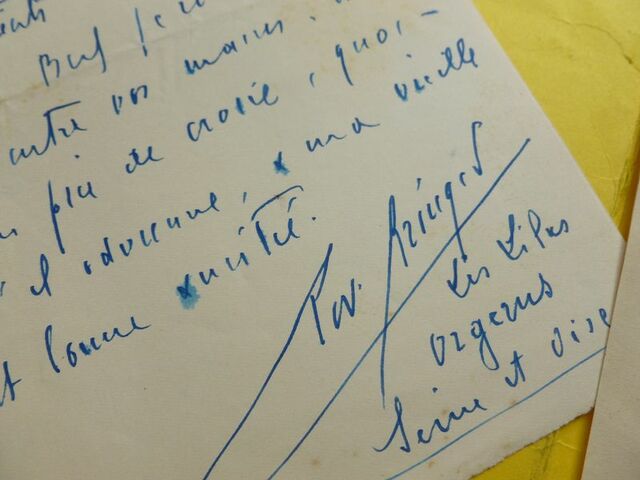 Bref je
entre vos mains.
prie de croire, quoi-
il advienne, à ma vieille
et bonne amitié.
Les Lilas
Orgerus
Seine et Oise